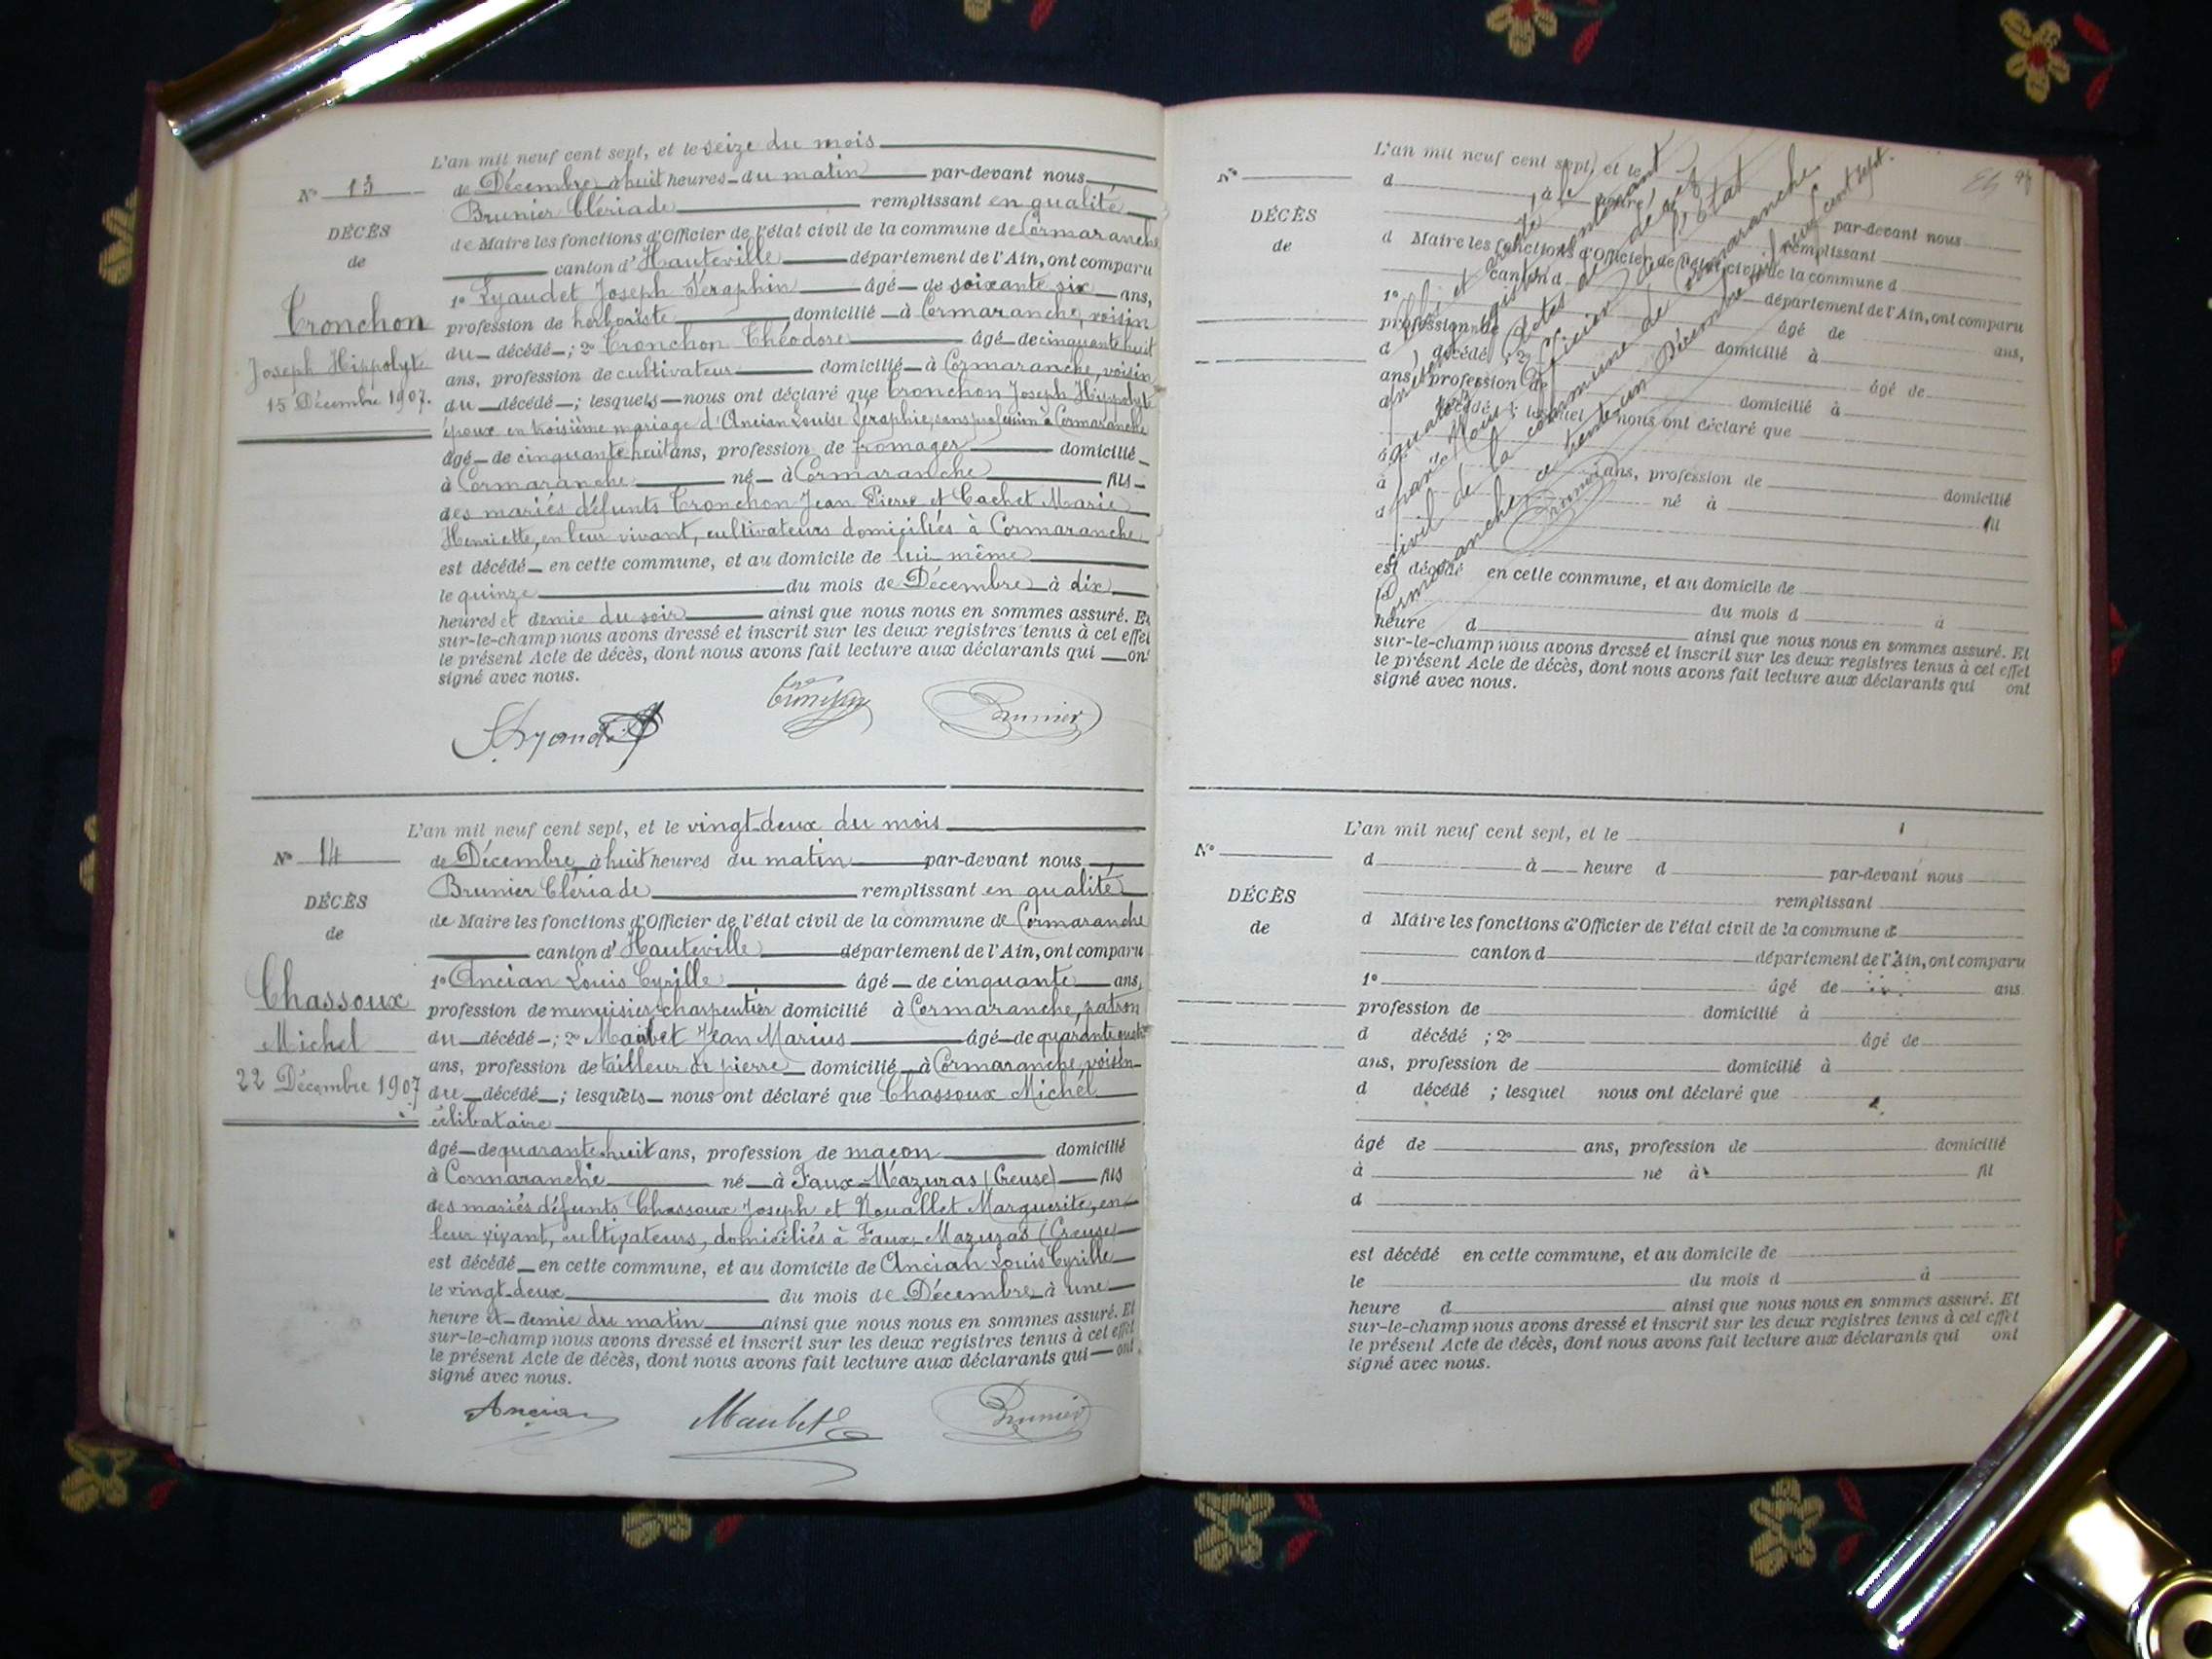 L'an mil neuf cent sept, et le seize du mois
N° 13
de Décembre à huit heures du matin par-devant nous
Brunier Clériade remplissant en qualité
DÉCÈS
de Maire les fonctions d'Officier de l'état civil de la commune de Cormaranche
de
canton d'Hauteville département de l'Ain, ont comparu
Tronchon
Joseph Hippolyte
15 Décembre 1907.
1° Lyaudet Joseph Séraphin âgé de soixante six ans,
profession de herboriste domicilié à Cormaranche, voisin
du décédé ; 2° Tronchon Théodore âgé de cinquante huit
ans, profession de cultivateur domicilié à Cormaranche, voisin
du décédé ; lesquels nous ont déclaré que Tronchon Joseph Hippolyte
époux en troisième mariage d'Ancian Louise Séraphie, sans profession à Cormaranche
âgé de cinquante huit ans, profession de fromager domicilié
à Cormaranche né à Cormaranche fils
des mariés défunts Tronchon Jean Pierre et Cachet Marie
Henriette, en leur vivant, cultivateurs domiciliés à Cormaranche
est décédé en cette commune, et au domicile de lui même
le quinze du mois de Décembre à dix
heures et demie du soir ainsi que nous nous en sommes assuré. Et
sur-le-champ nous avons dressé et inscrit sur les deux registres tenus à cet effet
le présent Acte de décès, dont nous avons fait lecture aux déclarants qui ont
signé avec nous.
Brunier
L'an mil neuf cent sept, et le vingt-deux du mois
N° 14
de Décembre à huit heures du matin par-devant nous
Brunier Clériade remplissant en qualité
DÉCÈS
de Maire les fonctions d'Officier de l'état civil de la commune de Cormaranche
de
canton d'Hauteville département de l'Ain, ont comparu
Chassoux
Michel
22 Décembre 1907
1° Ancian Louis Cyrille âgé de cinquante ans,
profession de menuisier charpentier domicilié à Cormaranche, patron
du décédé ; 2° Maubet Jean Marius âgé de quarante quatre
ans, profession de tailleur de pierre domicilié à Cormaranche, voisin
du décédé ; lesquels nous ont déclaré que Chassoux Michel
célibataire
âgé de quarante-huit ans, profession de maçon domicilié
à Cormaranche né à Faux-Mazuras (Creuse) fils
des mariés défunts Chassoux Joseph et Nouallet Marguerite, en
leur vivant, cultivateurs, domiciliés à Faux-Mazuras (Creuse)
est décédé en cette commune, et au domicile de Ancian Louis Cyrille
le vingt-deux du mois de Décembre à une
heure et demie du matin ainsi que nous nous en sommes assuré. Et
sur-le-champ nous avons dressé et inscrit sur les deux registres tenus à cet effet
le présent Acte de décès, dont nous avons fait lecture aux déclarants qui ont
signé avec nous.
Ancian Maubet Brunier
L'an mil neuf cent sept, et le
N°
d à heure par-devant nous
DÉCÈS
remplissant
de
d Maire les fonctions d'Officier de l'état civil de la commune d
canton d département de l'Ain, ont comparu
1° âgé de ans,
profession de domicilié à
d décédé ; 2° âgé de
ans, profession de domicilié à
d décédé ; lesquel nous ont déclaré que
âgé de ans, profession de domicilié
à né à fil
d
est décédé en cette commune, et au domicile de
le du mois d à
heure d ainsi que nous nous en sommes assuré. Et
sur-le-champ nous avons dressé et inscrit sur les deux registres tenus à cet effet
le présent Acte de décès, dont nous avons fait lecture aux déclarants qui ont
signé avec nous.
Clos et arrêté le
présent registre contenant
quatorze actes de décès
par Nous Officier de l'Etat
civil de la commune de Cormaranche.
Cormaranche, ce trente-un Décembre mil neuf cent sept.
Brunier
L'an mil neuf cent sept, et le
N°
d à heure d par-devant nous
remplissant
DÉCÈS
d Maire les fonctions d'Officier de l'état civil de la commune d
de
canton d département de l'Ain, ont comparu
1° âgé de ans
profession de domicilié à
d décédé ; 2° âgé de
ans, profession de domicilié à
d décédé ; lesquel nous ont déclaré que
âgé de ans, profession de domicilié
à né à fil
d
est décédé en cette commune, et au domicile de
le du mois d à
heure d ainsi que nous nous en sommes assuré. Et
sur-le-champ nous avons dressé et inscrit sur les deux registres tenus à cet effet
le présent Acte de décès, dont nous avons fait lecture aux déclarants qui ont
signé avec nous.